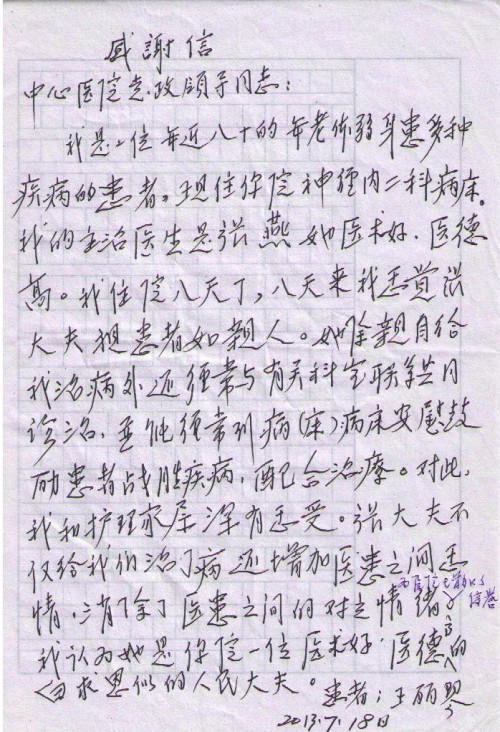 感謝信
中心医院党.政領导同志：
我是一位年近八十的年老体弱身患多种
疾病的患者。现住你院神経内二科病床。
我的主治医生是张燕她医术好.医德
高。我住院八天了，八天来我感觉张
大夫视患者如親人。她除親自给
我治病外还経常与有关科室联系共同
诊治.并能经常到病(床)病床安慰鼓
励患者战胜疾病，配合治療。对此,
我和护理家属深有感受。张大夫不
仅给我们治了病还增加医患之间感
情，消除了医患之间的对立情绪。
为医院
信誉
我认为她是你院一位医术好.医德高的
白求恩似的人民大夫。患者：王丽
2013.7.18日